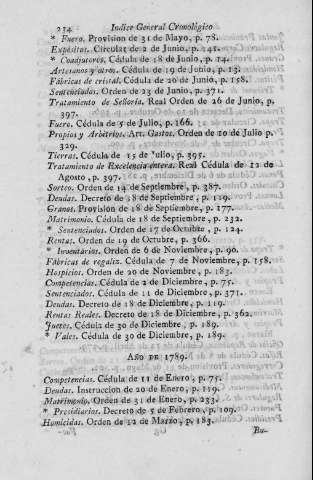 214 Indice General Cronológico
* Fuero. Provision de 31 de Mayo, p. 78.
Expósitos. Circular de 2 de Junio, p. 141.
* Coadjutores. Cédula de 18 de Junio, p. 14.
Artesanos y otros. Cédula de 19 de Junio, p. 13.
Fábricas de cristal. Cédula de 20 de Junio, p. 158.
Sentenciados. Orden de 23 de Junio, p. 371.
Tratamiento de Señoría. Real Orden de 26 de Junio, p.
397.
Fuero. Cédula de 5 de Julio, p. 166.
Propios y Arbitrios. Art. Gastos. Orden de 20 de Julio p.
329.
Tierras. Cédula de 15 de Julio, p. 395.
Tratamiento de Excelencia entera. Real Cédula de 12 de
Agosto, p. 397.
Sorteo. Orden de 14 de Septiembre, p. 387.
Deudas. Decreto de 18 de Septiembre, p. 119.
Granos. Provision de 18 de Septiembre, p. 177.
Matrimonio. Cédula de 18 de Septiembre, p. 232.
* Sentenciados. Orden de 17 de Octubre, p. 124.
Rentas. Orden de 19 de Octubre, p. 366.
* Inventarios. Orden de 6 de Noviembre, p. 90.
Fábricas de regaliz. Cédula de 7 de Noviembre, p. 158.
Hospicios. Orden de 20 de Noviembre, p. 183.
Competencias. Cédula de 2 de Diciembre, p. 75.
Sentenciados. Cédula de 11 de Diciembre, p. 371.
Deudas. Decreto de 18 de Diciembre, p. 119.
Rentas Reales. Decreto de 18 de Diciembre, p. 362.
Jueces. Cédula de 30 de Diciembre, p. 189.
* Vales. Cédula de 30 de Diciembre, p. 189.
AÑO DE 1789.
Competencias. Cédula de 11 de Enero, p. 75.
Deudas. Instruccion de 20 de Enero, p. 119.
Matrimonio. Orden de 31 de Enero, p. 233.
* Presidiarios. Decreto de 5 de Febrero, p. 109.
Homicidas. Orden de 12 de Marzo, p. 183.
Bu-